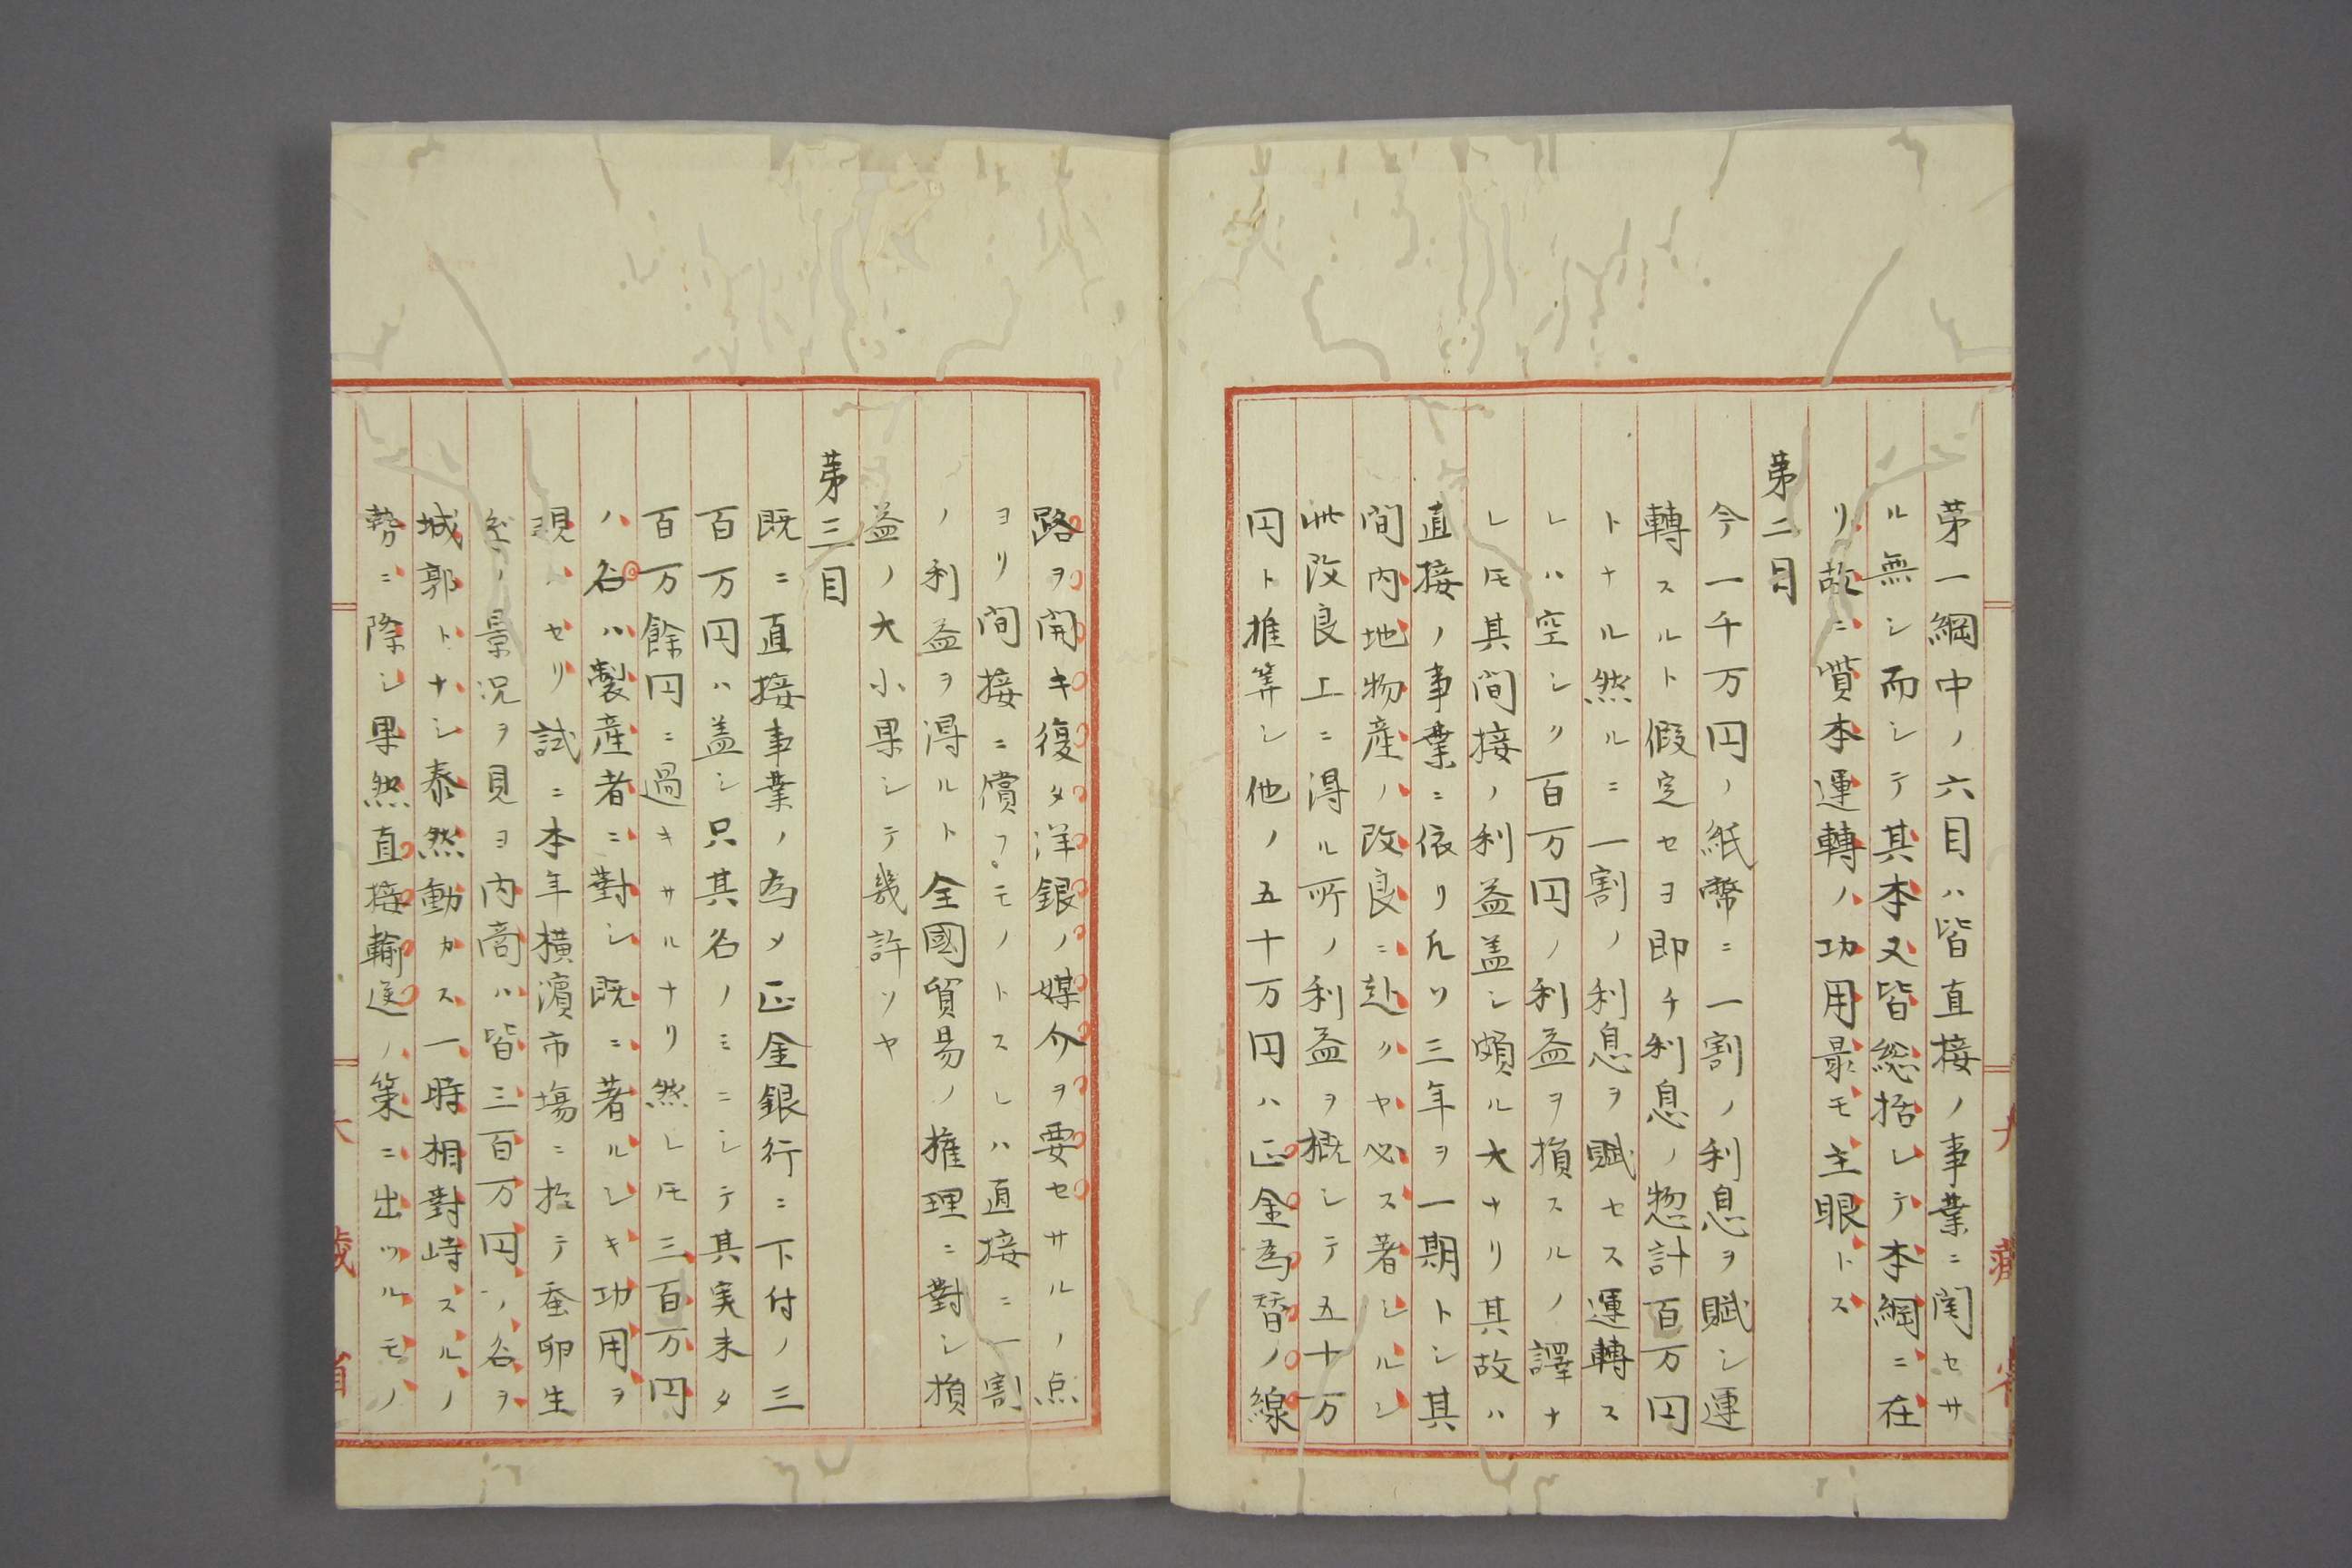 第一綱中ノ六目ハ皆直接ノ事業ニ関セサ
ル無シ而シテ其本又皆総括シテ本綱ニ在
リ故ニ資本運轉ノ功用最モ主眼トス
第二目
今一千万円ノ紙幣ニ一割ノ利息ヲ賦シ運
轉スルト假定セヨ即チ利息ノ惣計百万円
トナル然ルニ一割ノ利息ヲ賦セス運轉ス
レハ空シク百万円ノ利益ヲ損スルノ譯ナ
レ𪜈其間接ノ利益盖シ頗ル大ナリ其故ハ
直接ノ事業ニ依リ凡ソ三年ヲ一期トシ其
間内地物産ノ改良ニ赴クヤ必ス著シルシ
此改良上ニ得ル所ノ利益ヲ概シテ五十万
円ト推算シ他ノ五十万円ハ正金為替ノ線
路ヲ開キ復タ洋銀ノ媒介ヲ要セサルノ点
ヨリ間接ニ償フモノトスレハ直接ニ一割
ノ利益ヲ得ルト全國貿易ノ権理ニ對シ損
益ノ大小果シテ幾許ソヤ
第三目
既ニ直接事業ノ為メ正金銀行ニ下付ノ三
百万円ハ盖シ只其名ノミニシテ其実未タ
百万餘円ニ過キサルナリ然レ𪜈三百万円
ハ名ハ製産者ニ對シ既ニ著ルシキ功用ヲ
現ハセリ試ニ本年横濱市場ニ於テ蚕卵生
糸ノ景况ヲ見ヨ内商ハ皆三百万円ノ名ヲ
城郭トナシ泰然動カス一時相對峙スルノ
勢ニ際シ果然直接輸送ノ策ニ出ツルモノ